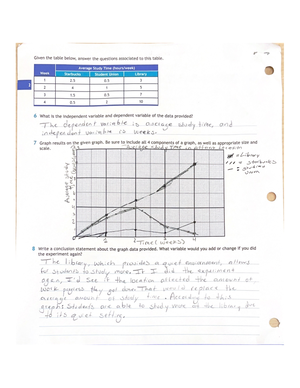 Given the table below, answer the questions associated to this table.
Average Study Time (hours/week)
Week Starbucks Student Union Library
1 2.5 0.5 3
2 4 1 5
3 1.5 0.5 7
4 0.5 2 10
6 What is the independent variable and dependent variable of the data provided?
The dependent variable is average study time and
independent variable is weeks.
7 Graph results on the given graph. Be sure to include all 4 components of a graph, as well as appropriate size and
scale.
Average Study Time
= Library
= Starbucks
= Student
Union
Average study
Time (weeks)
8 Write a conclusion statement about the graph data provided. What variable would you add or change if you did
the experiment again?
The library, which provides a quiet environment, allows
for students to study more. If I did the experiment
again, I'd see if the location affected the amount of
work papers they got done. That would replace the
average amount of study time. According to this
graph, students are able to study more at the library due
to its quiet setting.